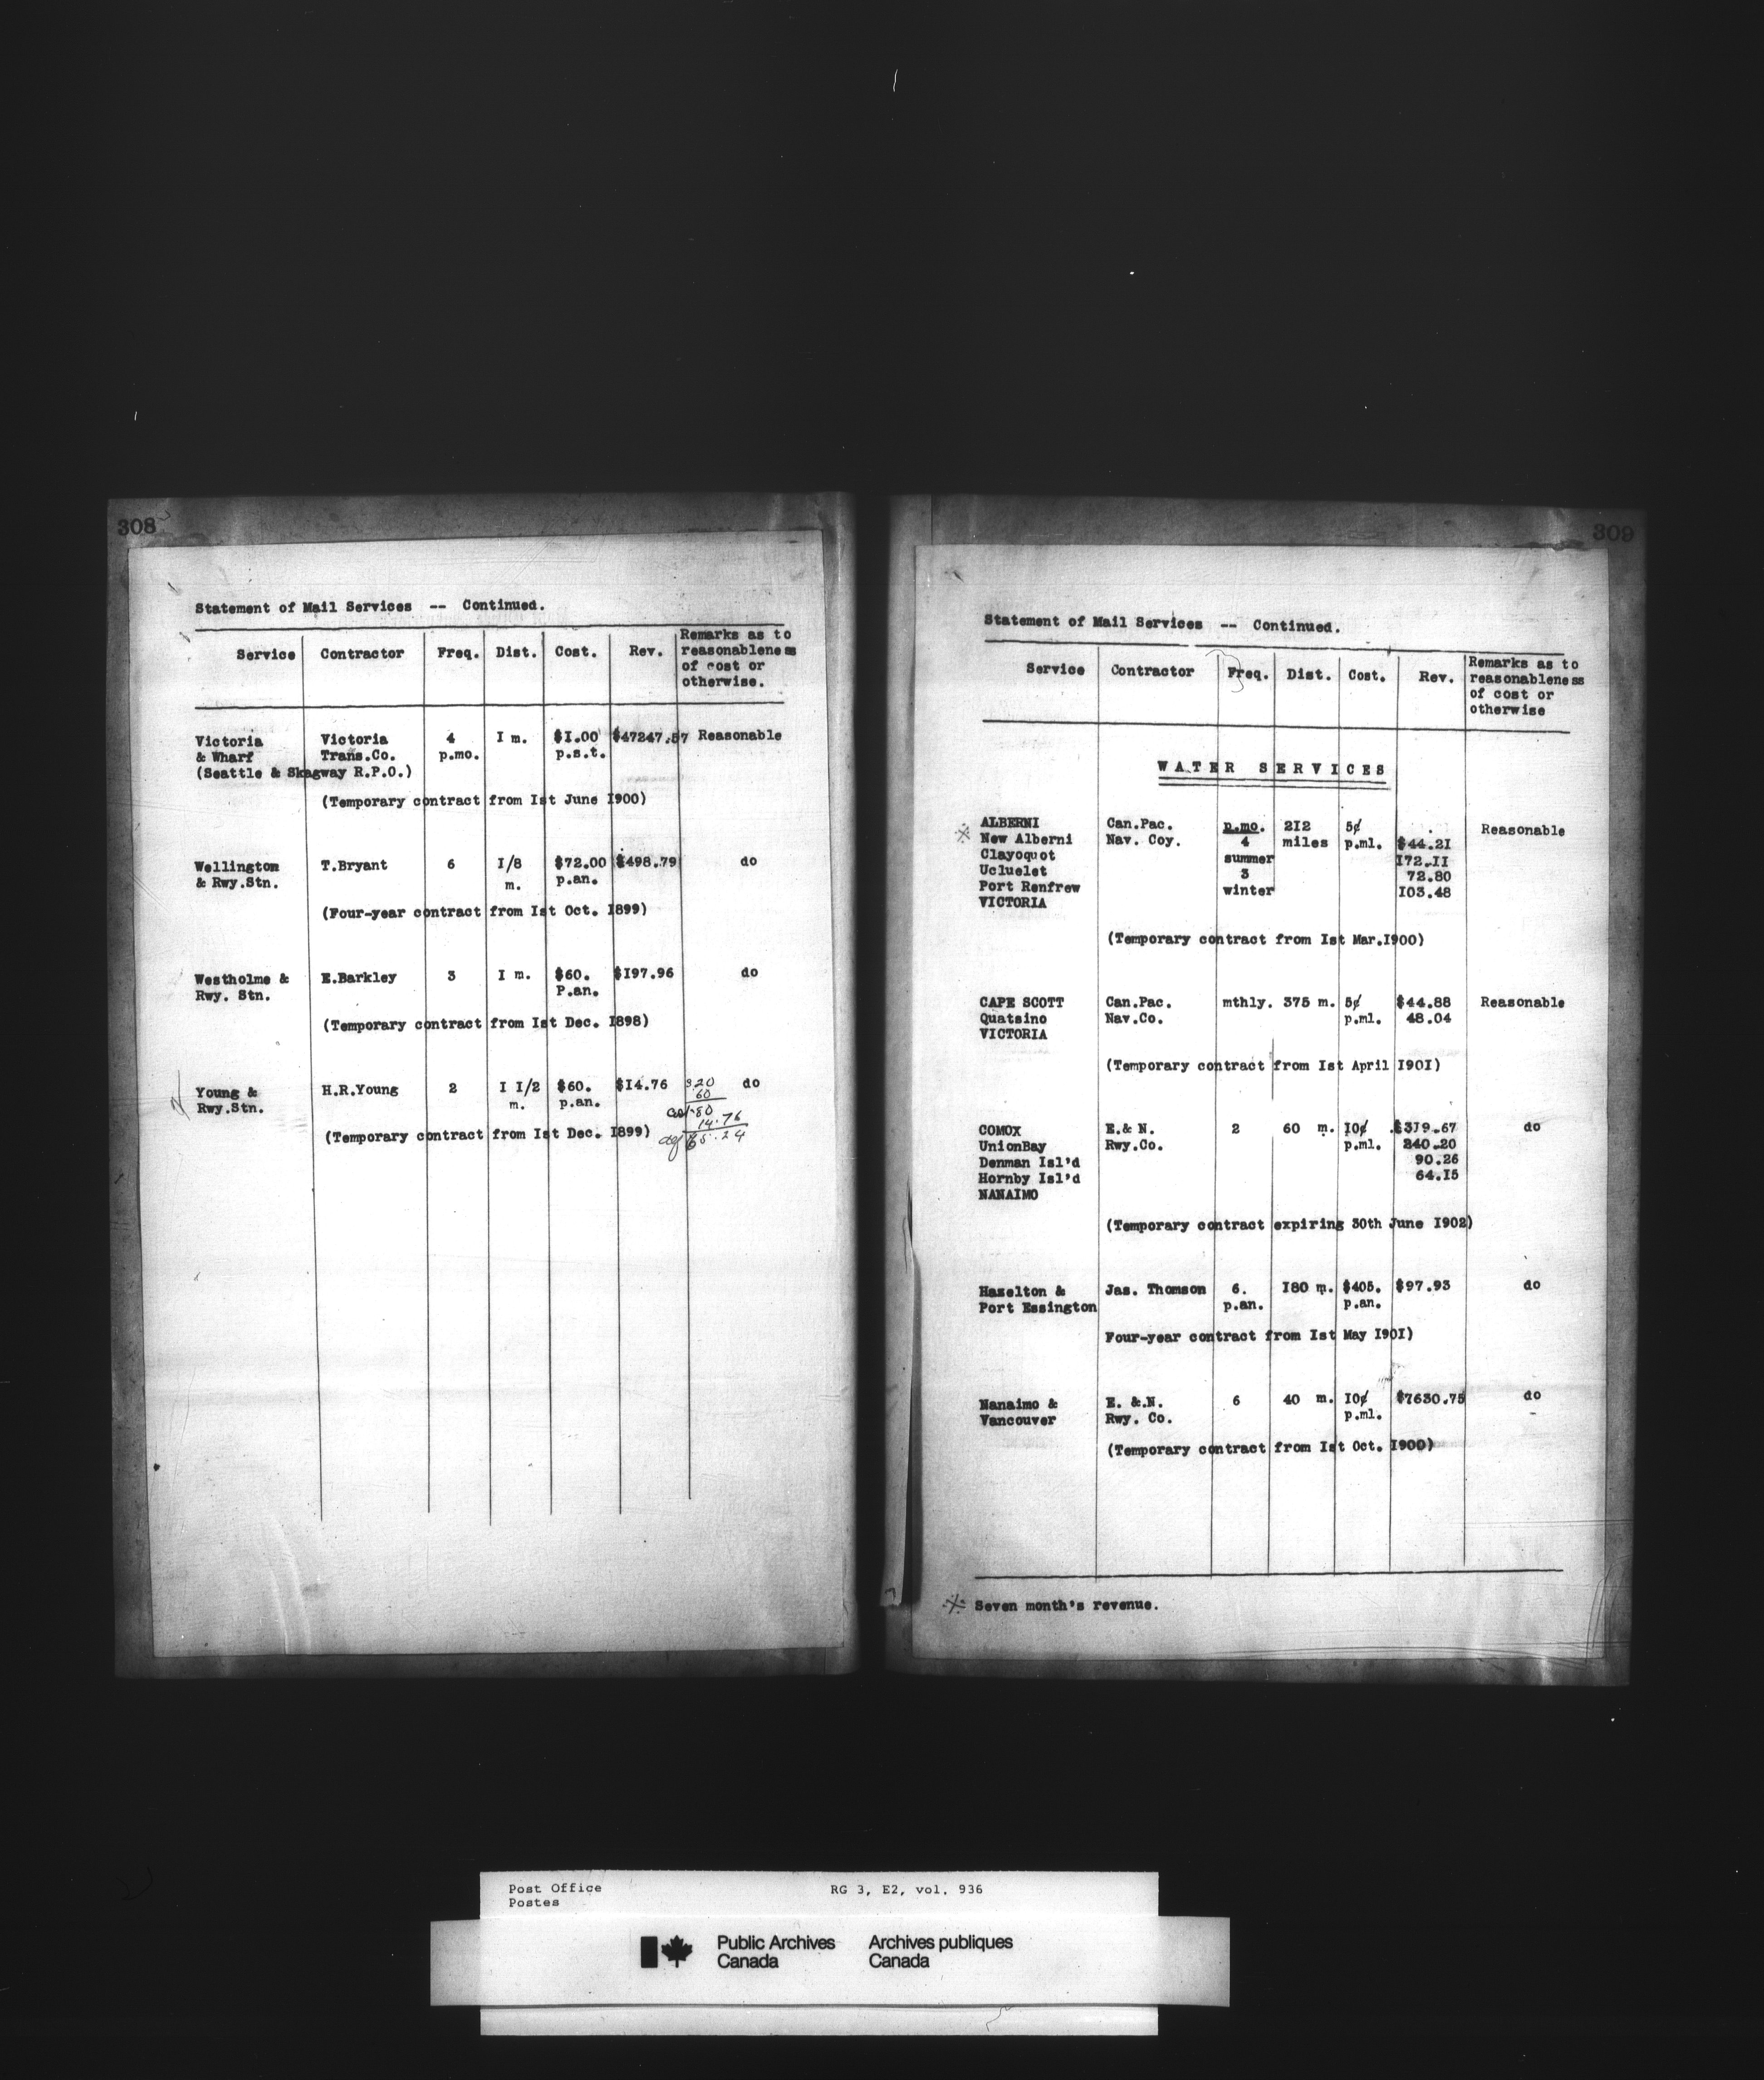 308
Statement of Mail Services -- Continued.
Service Contractor Freq. Dist. Cost. Rev. Remarks as to
reasonableness
of cost or
otherwise.
Victoria Victoria 4 I m. $I.00 $47247.57 Reasonable
& Wharf Trans.Co. p.mo. p.s.t.
(Seattle & Skagway R.P.O.)
(Temporary contract from Ist June I900)
Wellington T.Bryant 6 I/8 $72.00 $498.79 do
& Rwy.Stn. m. p.an.
(Four-year contract from Ist Oct. I899)
Westholme & E.Barkley 3 I m. $60. $I97.96 do
Rwy. Stn. P.an.
(Temporary contract from Ist Dec. I898)
Young & H.R.Young 2 I I/2 $60. $I4.76 320 do
Rwy.Stn. m. p.an. 60
80
14.76
(Temporary contract from Ist Dec. I899) 65.24
309
Statement of Mail Services -- Continued.
Service Contractor Freq. Dist. Cost. Rev. Remarks as to
reasonableness
of cost or
otherwise
WATER SERVICES
ALBERNI Can.Pac. p.mo. 2I2 5¢ Reasonable
※ New Alberni Nav. Coy. 4 miles p.ml. $44.2I
Clayoquot summer I72.II
Ucluelet 3 72.80
Port Renfrew winter I03.48
VICTORIA
(Temporary contract from Ist Mar.I900)
CAPE SCOTT Can.Pac. mthly. 375 m. 5¢ $44.88 Reasonable
Quatsino Nav.Co. p.ml. 48.04
VICTORIA
(Temporary contract from Ist April I90I)
COMOX E.& N. 2 60 m. I0¢ $3I9.67 do
UnionBay Rwy.Co. p.ml. 240.20
Denman Isl'd 90.26
Hornby Isl'd 64.I5
NANAIMO
(Temporary contract expiring 30th June I902)
Hazelton & Jas. Thomson 6. I80 m. $405. $97.93 do
Port Essington p.an. p.an.
Four-year contract from Ist May I90I)
Nanaimo & E. &.N. 6 40 m. I0¢ $7630.75 do
Vancouver Rwy. Co. p.ml.
(Temporary contract from Ist Oct. I900)
※ Seven month's revenue.
Post Office RG 3, E2, vol. 936
Postes
Public Archives Archives publiques
Canada Canada